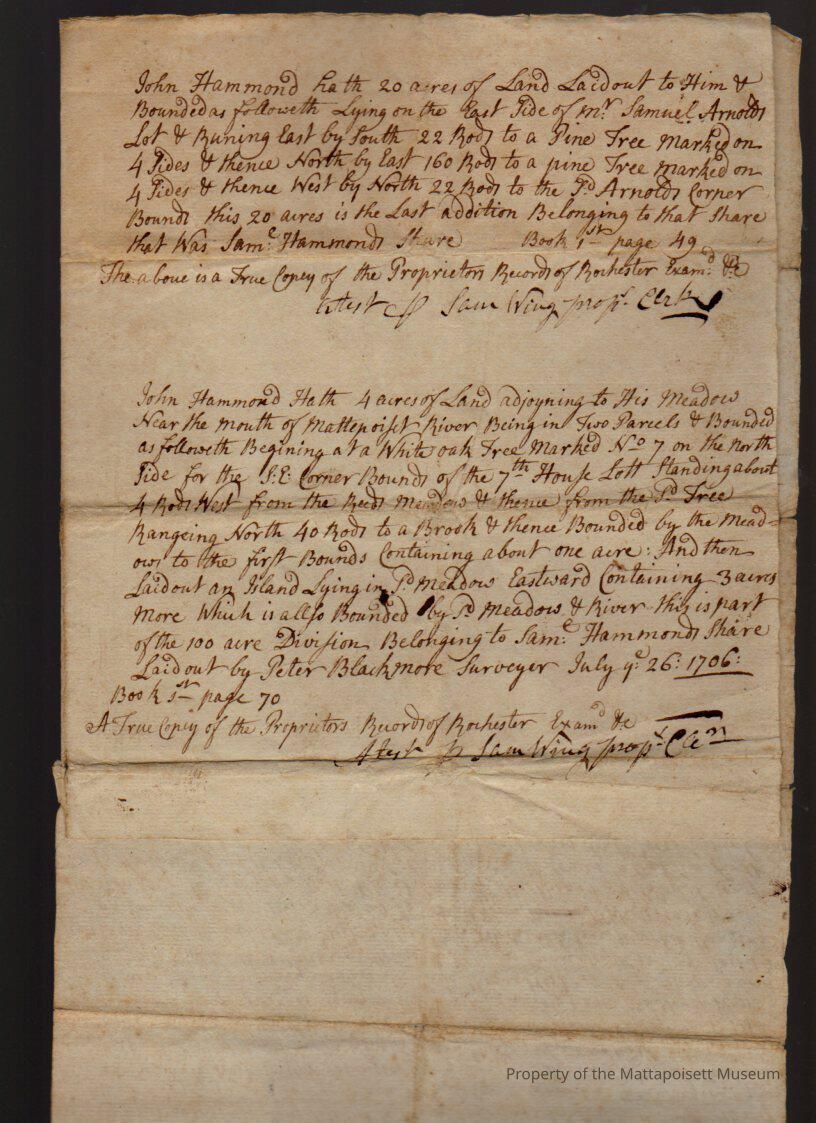 John Hammond hath 20 acres of Land Laid out to Him &
Bounded as followeth Lying on the East Side of mr. Samuel Arnolds
Lot & Runing East by South 22 Rods to a Pine Tree Marked on
4 Sides & thence North by East 160 Rods to a pine Tree marked on
4 Sides & thence West by North 22 Rods to the Sd Arnolds Corner
Bounds this 20 acres is the Last addition Belonging to that Share
that Was Saml Hammonds Share Book 1st page 49
The above is a True Copey of the Proprietors Records of Rochester Examd &c
Attest Sam Wing propr. Clerk
John Hammond Hath 4 acres of Land adjoyning to His Meadow
Near the mouth of Mattepoiset River Being in Two Parcels & Bounded
as followeth Begining at a White oak Tree Marked No 7 on the North
Side for the S:E: Corner Bounds of the 7th House Lott Standing about
4 Rods West from the Reeds Meadows & thence from the Sd Tree
Rangeing North 40 Rods to a Brook & thence Bounded by the Mead=
ows to the first Bounds Containing about one acre: And then
Laid out an Island Lying in Sd Meadow Eastward Containing 3 acres
More Which is allso Bounded by Sd Meadow & River this is part
of the 100 acre Division Belonging to Saml Hammonds Share
Laid out by Peter Blackmore Surveyer July ye 26: 1706:
Book 1st page 70
A True Copey of the Proprietors Records of Rochester Examd &c
Attest Sam Wing propr
Property of the Mattapoisett Museum